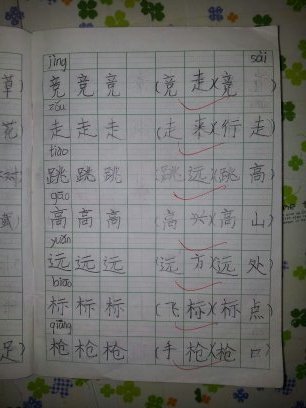 jìng sài
竞 竞 竞 (竞 走)(竞 )
zǒu
走 走 走 (走 来)(行 走)
tiào
跳 跳 跳 (跳 远)(跳 高)
gāo
高 高 高 (高 兴)(高 山)
yuǎn
远 远 远 (远 方)(远 处)
biāo
标 标 标 (飞 标)(标 点)
qiāng
枪 枪 枪 (手 枪)(枪 口)
草)
花
足)